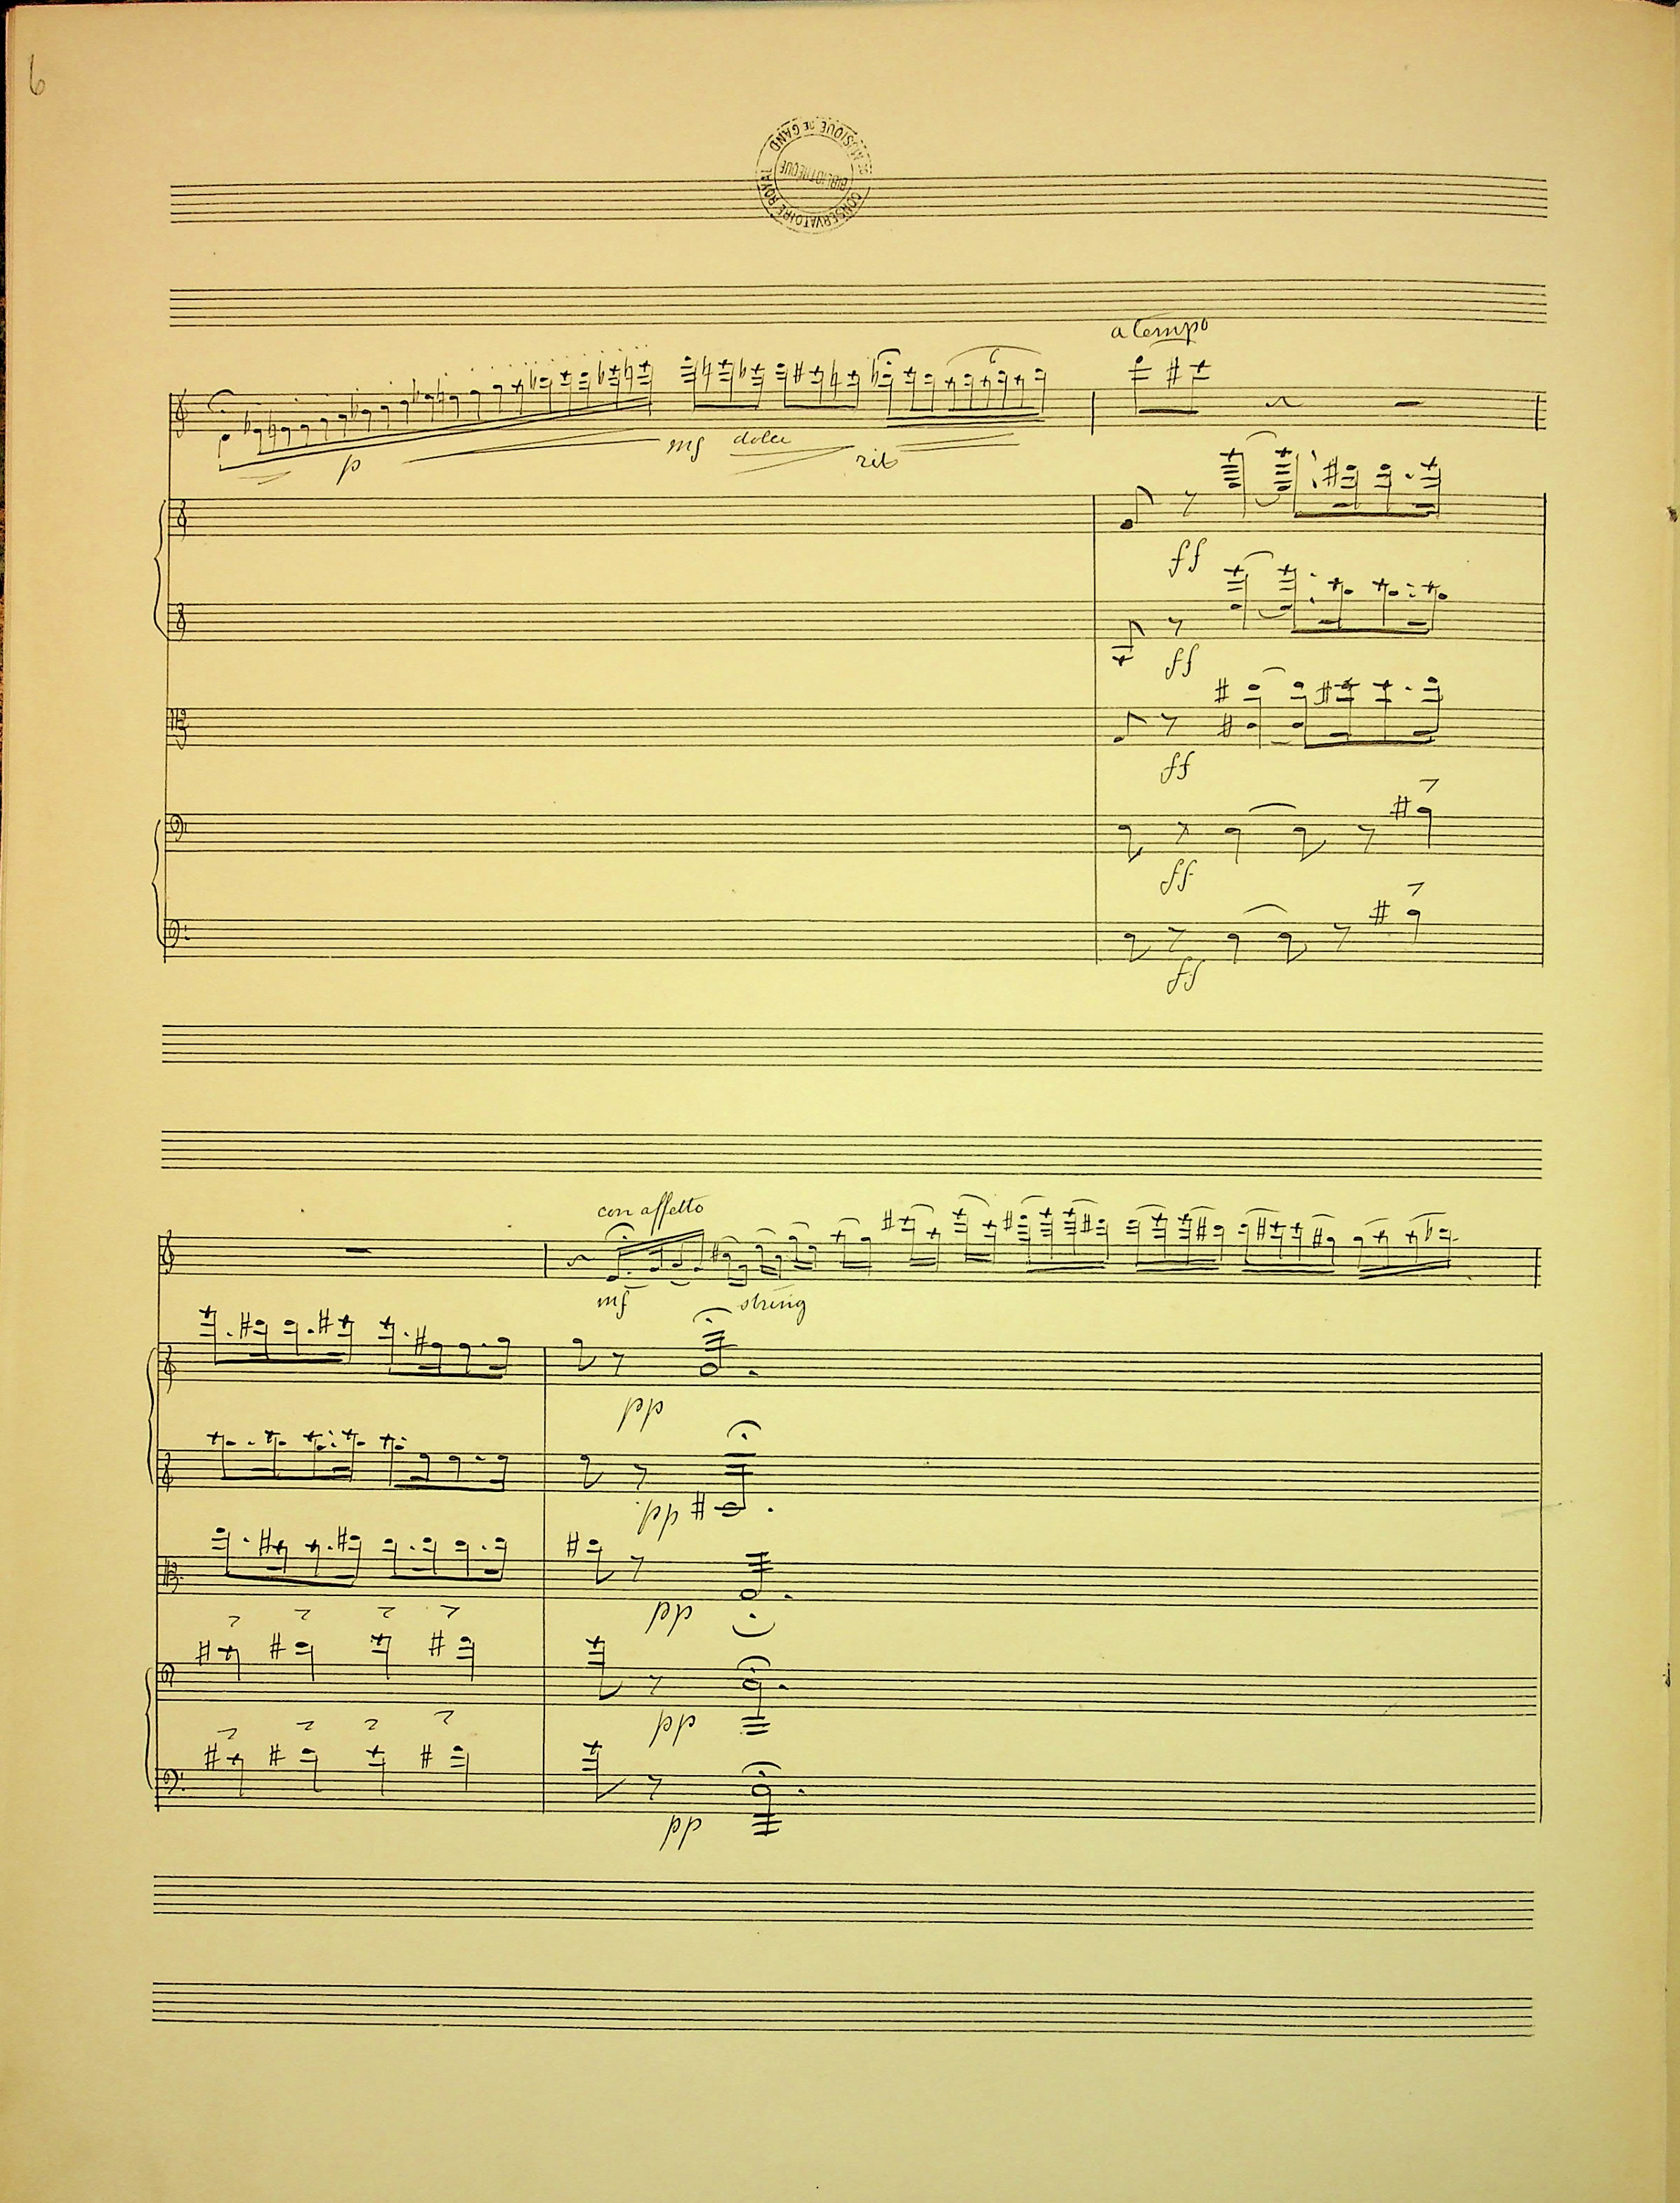 6
CONSERVATOIRE ROYAL DE MUSIQUE DE GAND
BIBLIOTHÈQUE
a tempo
6
p mf dolce rit
ff
ff
ff
ff
ff
con affetto
mf string
pp
pp
pp
pp
pp